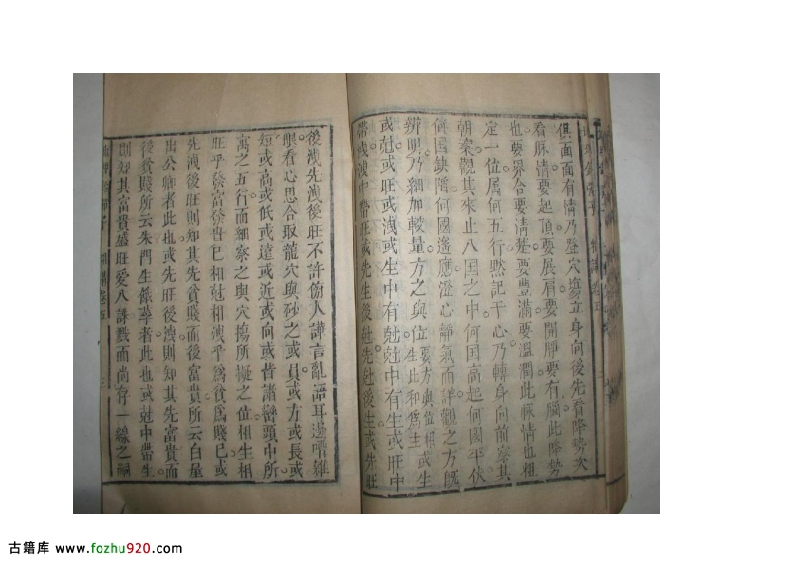 俱面面有情乃登穴塲立身向後先看降勢次
看厥情要起頂要展肩要開靜要有個此降勢
也要界合要清楚要豐滿要溫潤此厥情也相
定一位屬何五行黙記于心乃轉身向前察其
朝案觀其來止八國之中何国高起何國平伏
何國缺陷何國邊應澄心靜氣而詳觀之方既
辨明乃細加較量方之與位要方與位相或生
生此和為主
或尅或旺或洩或生中有尅尅中有生或旺中
帶洩洩中帶旺或先生後尅先尅後生或先旺
後洩先洩後旺不許傍人譁言亂語耳邊嘈雜
眼看心思合取龍穴與砂之或員或方或長或
短或高或低或遠或近或向或背諸巒頭中所
寓之五行而細察之與穴塲所擬之位相生相
旺乎發富發貴已相尅相洩乎為貧為賤已或
先洩後旺則知其先貧賤而後富貴所云白屋
出公卿者此也或先旺後洩則知其先富貴而
後貧賤所云朱門生餓莩者此也或尅中帶生
則知其富貴盛旺受人誅戮而尚存一線之嗣
古籍库 www.fozhu920.com